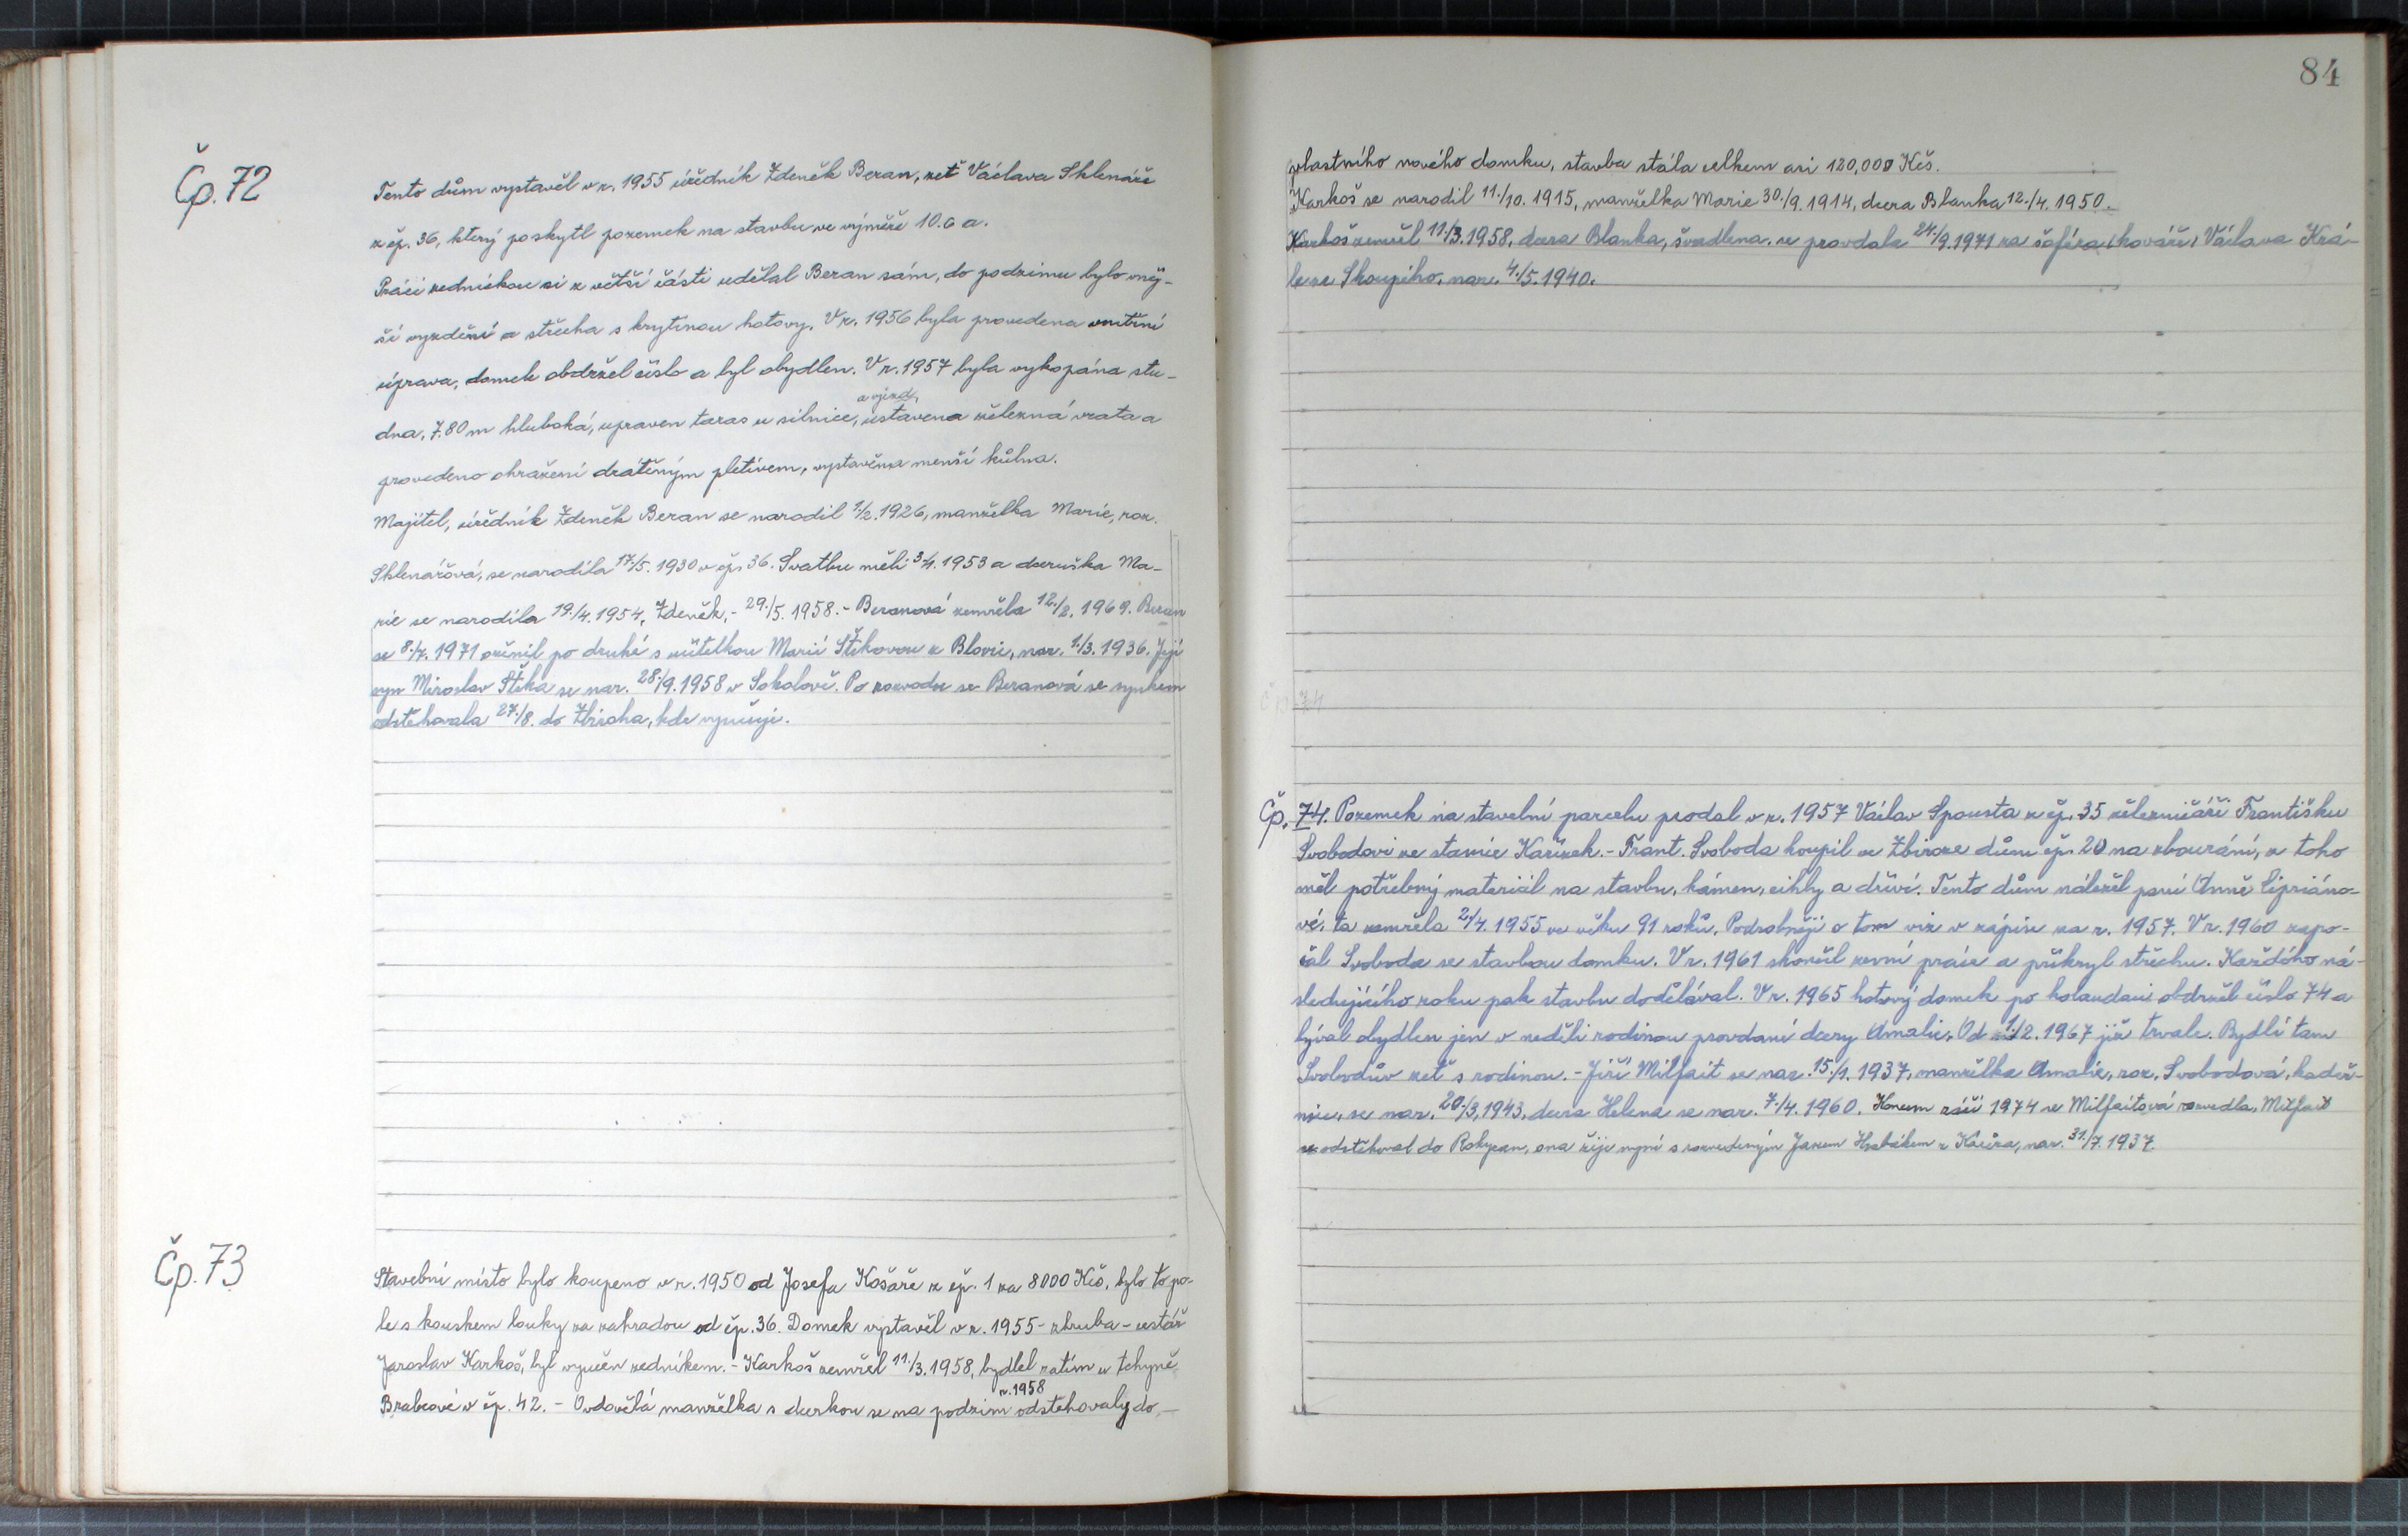 Čp. 72
Tento dům vystavěl v r. 1955 úředník Zdeněk Beran, zeť Václava Sklenáře
z čp. 36, který poskytl pozemek na stavbu ve výměře 10.6 a.
Práci zednickou si z větší části udělal Beran sám, do podzimu bylo vněj-
ší vyzdění a střecha s krytinou hotovy. V r. 1956 byla provedena vnitřní
úprava, domek obdržel číslo a byl obydlen. V r. 1957 byla vykopána stu-
a vjezd,
dna, 7.80 m hluboká, upraven taras u silnice, ustavena železná vrata a
provedeno ohražení drátěným pletivem, vystavěna menší kůlna.
Majitel, úředník Zdeněk Beran se narodil 1./2. 1926, manželka Marie, roz.
Sklenářová, se narodila 17./5. 1930 v čp. 36. Svatbu měli 3/4. 1953 a dceruška Ma-
rie se narodila 19./4. 1954, Zdeněk, - 29./5. 1958. - Beranová zemřela 12./2. 1969. Beran
se 8./7. 1971 oženil po druhé s učitelkou Marií Štěkovou z Blovic, nar. 1./3. 1936. Její
syn Miroslav Štěka se nar. 28./9. 1958 v Sokolově. Po rozvodu se Beranová se synkem
odstěhovala 27./8. do Zbiroha, kde vyučuje.
Čp. 73
Stavební místo bylo koupeno v r. 1950 od Josefa Košaře z čp. 1 za 8000 Kčs, bylo to po-
le s kouskem louky za zahradou od čp. 36. Domek vystavěl v r. 1955 - zhruba - cestář
Jaroslav Karkoš, byl vyučen zedníkem. - Karkoš zemřel 11./3. 1958, bydlel zatím u tchyně
Brabcové v čp. 42. - Ovdovělá manželka s dcerkou se na podzim odstěhovaly do
r. 1958
84
vlastního nového domku, stavba stála celkem asi 120,000 Kčs.
Karkoš se narodil 11./10. 1915, manželka Marie 30./9. 1914, dcera Blanka 12./4. 1950.
Karkoš zemřel 11./3. 1958, dcera Blanka, švadlena, se provdala 24./9. 1971 za šoféra (kováře) Václava Krá-
le ze Skoupého, nar. 4./5. 1940.
Čp. 74
Čp. 74. Pozemek na stavební parcelu prodal v r. 1957 Václav Spousta z čp. 35 železničáři Františku
Svobodovi ze stanice Kařízek. - Frant. Svoboda koupil ve Zbiroze dům čp. 20 na zbourání, z toho
měl potřebný materiál na stavbu, kámen, cihly a dříví. Tento dům náležel paní Anně Cipriáno-
vé, ta zemřela 2./4. 1955 ve věku 91 roků. Podrobněji o tom viz v zápise za r. 1957. V r. 1960 zapo-
čal Svoboda se stavbou domku. V r. 1961 skončil zevní práce a přikryl střechu. Každého ná-
sledujícího roku pak stavbu dodělával. V r. 1965 hotový domek po kolaudaci obdržel číslo 74 a
býval obydlen jen v neděli rodinou provdané dcery Amalie. Od 1./2. 1967 již trvale. Bydlí tam
Svobodův zeť s rodinou. - Jiří Milfait se nar. 15./1. 1937, manželka Amalie, roz. Svobodová, kadeř-
nice, se nar. 20./3. 1943, dcera Helena se nar. 7./4. 1960. Koncem září 1974 se Milfaitová rozvedla, Milfait
se odstěhoval do Rokycan, ona žije nyní s rozvedeným Janem Hrabákem z nar. 31./7. 1937.